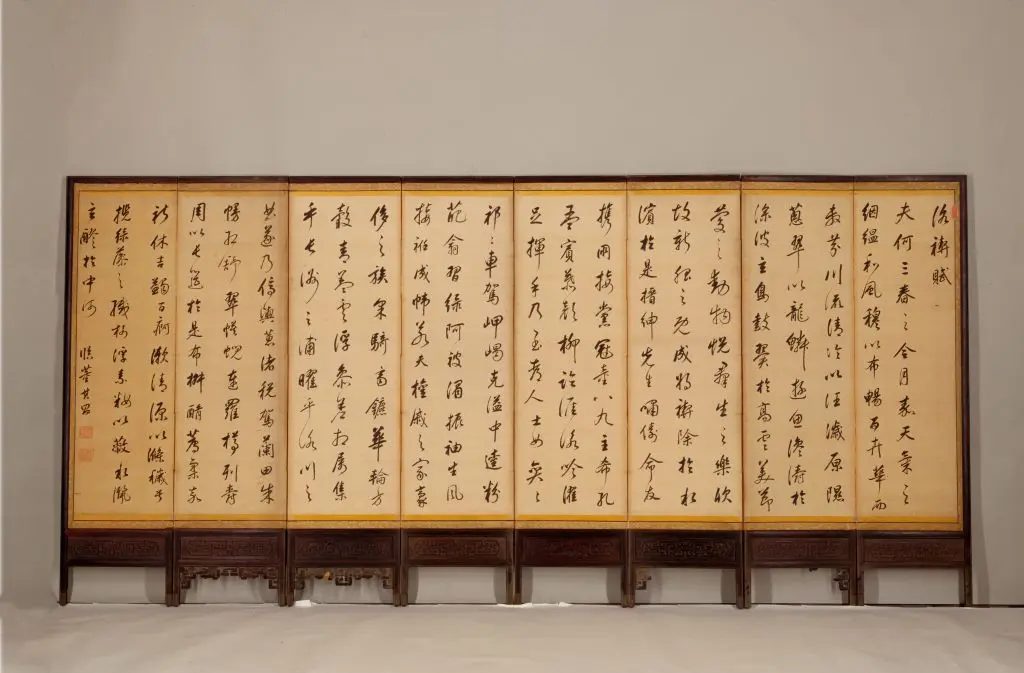 洛禊賦
夫何三春之令月嘉天氣之
絪縕和風穆以布暢百卉華而
敷芬川流清泠以汪濊原隰
蔥翠以龍鱗遊魚瀺灂於
淥波玄鳥鼓翼於高雲美節
慶之動物悅群生之樂欣
故新服之既成將禊除於水
濱於是搢紳先生嘯儔命友
攜朋接黨冠童八九主希孔
孟賓慕顏柳臨涯詠吟濯
足揮手乃至都人士女奕〻
祁〻車駕岬嵑充溢中逵粉
葩翕習緣阿被湄振袖生風
接衽成幃若夫權戚之家豪
侈之族采騎齊鑣華輪方
轂青蓋雲浮參差相屬集
乎長洲之浦曜乎洛川之
曲遂乃停輿蕙渚稅駕蘭田朱
幔虹舒翠幕蜺連羅樽列爵
周以長筵於是布椒醑薦柔嘉
祈休吉蠲百痾漱清源以滌穢兮
攬綠藻之纖柯浮素妝以蔽水灑
玄醪於中河 臨董其昌